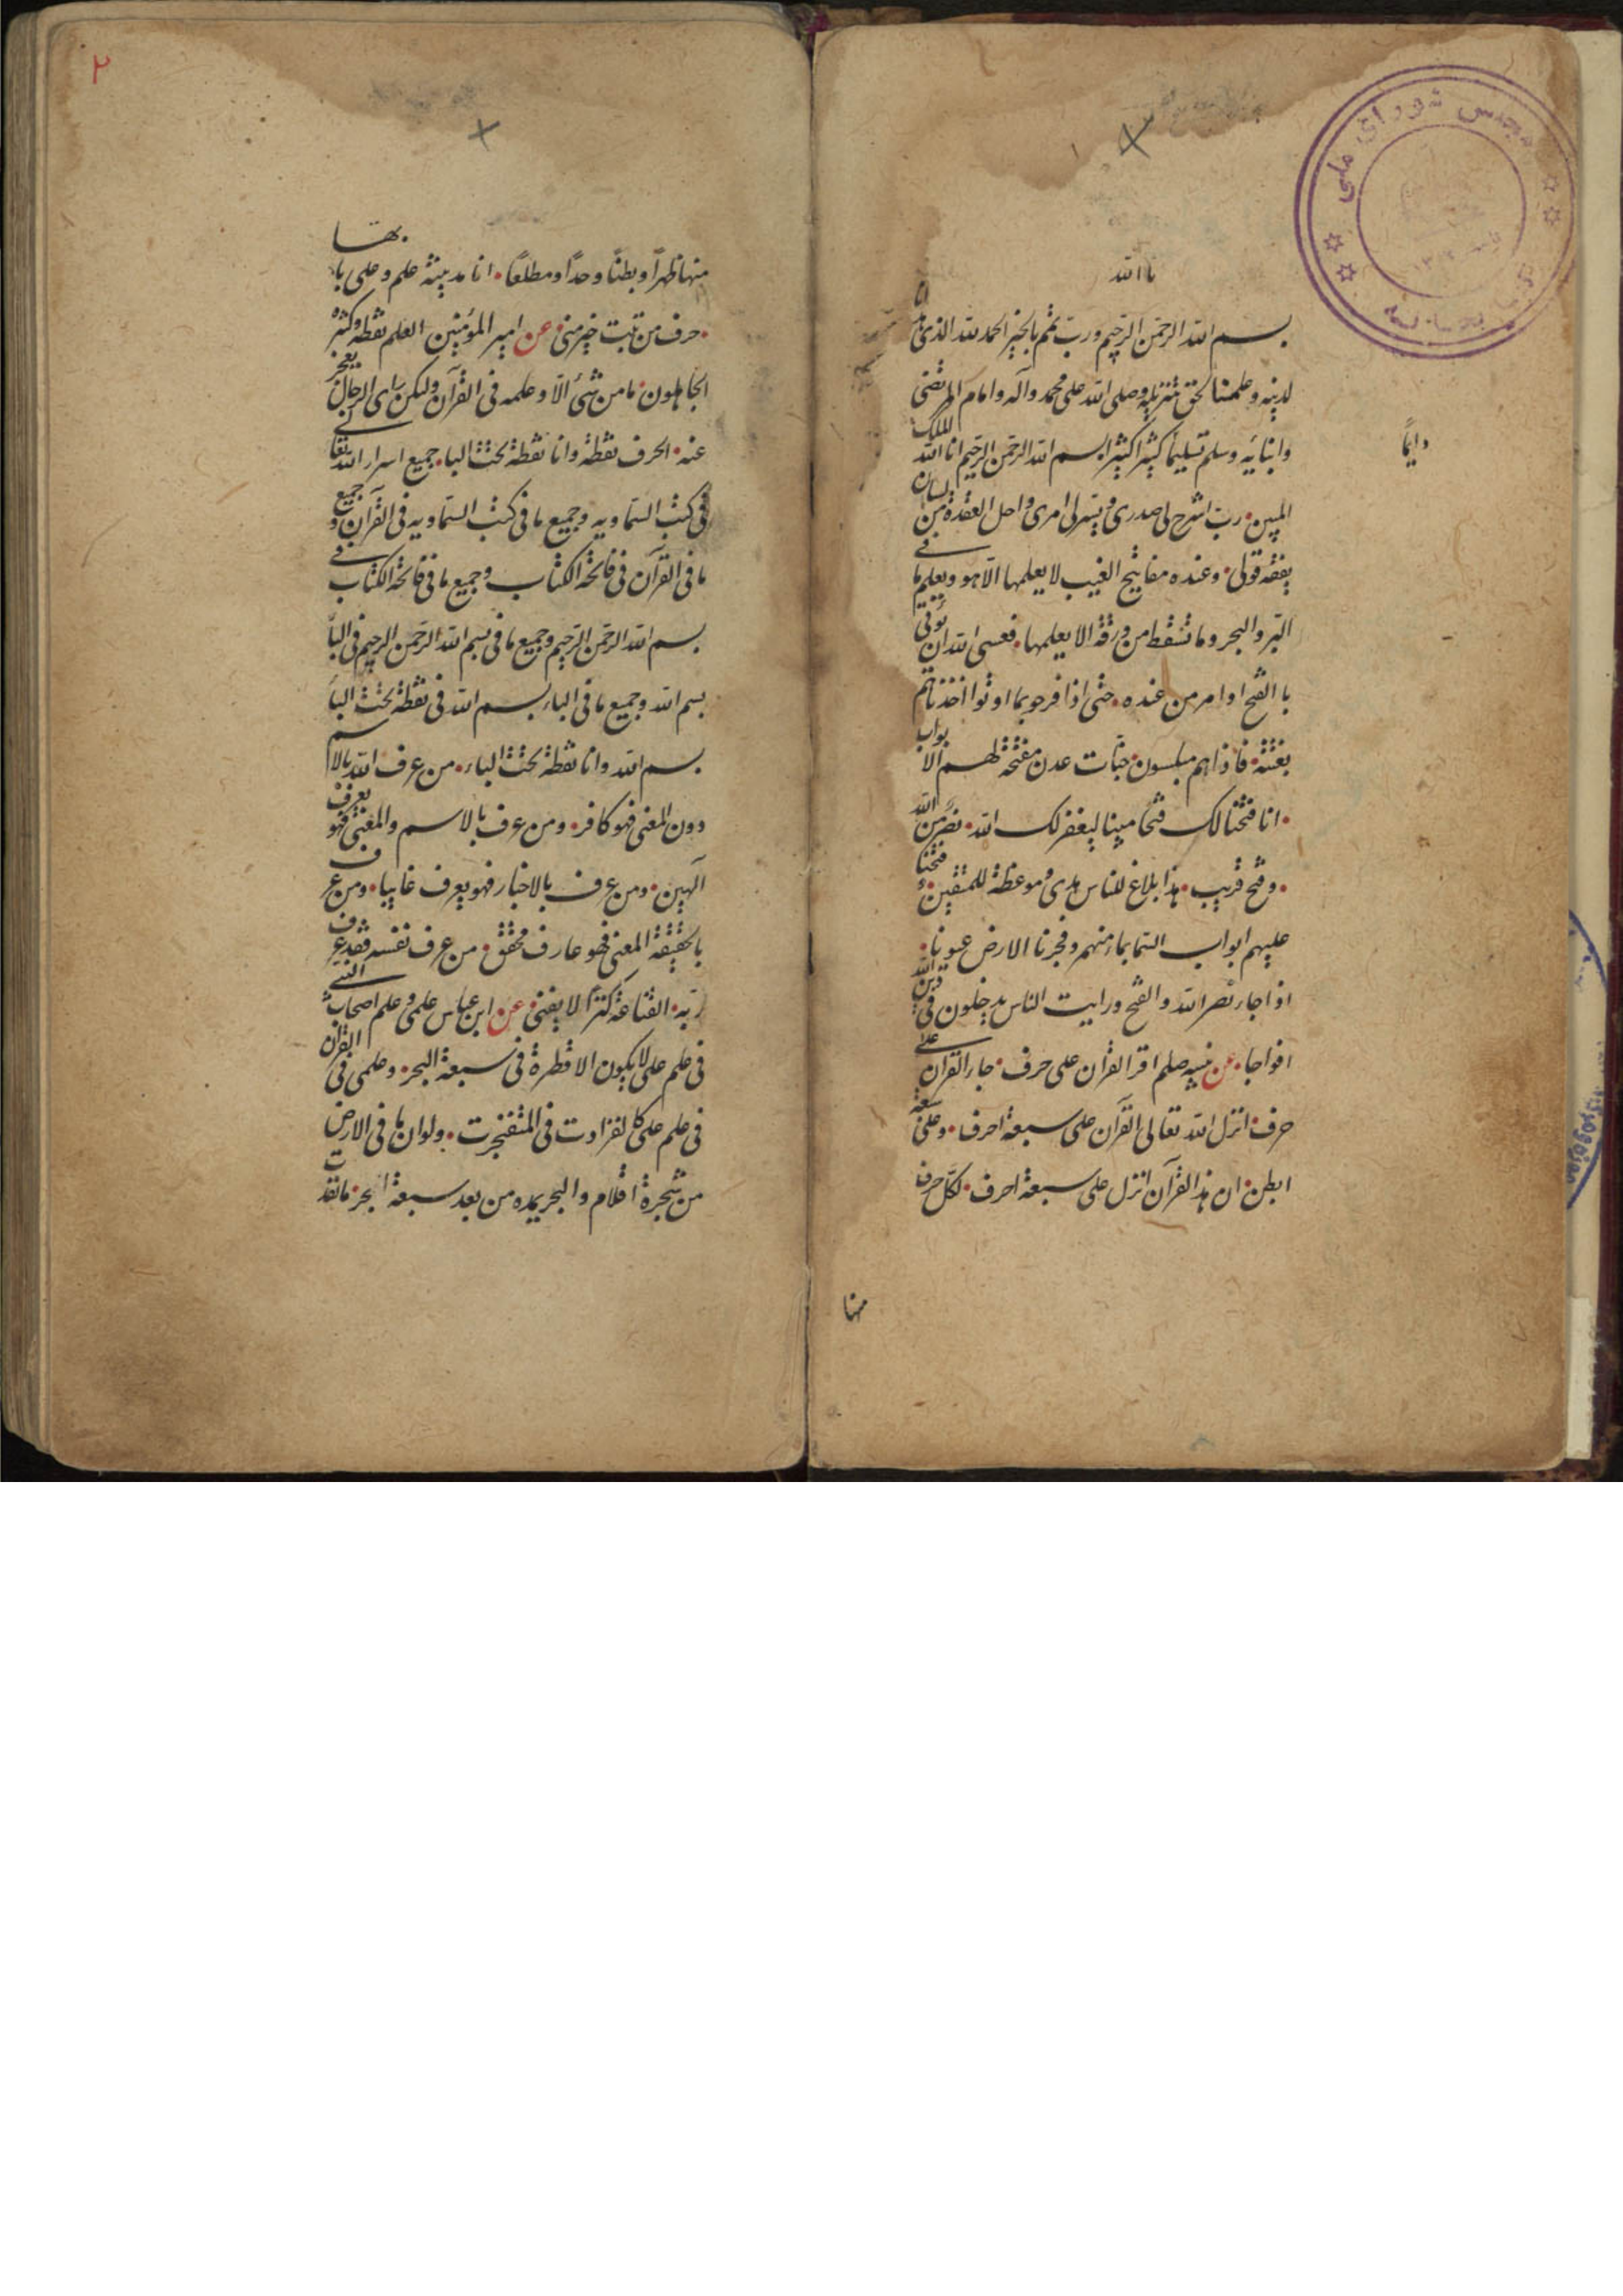 یا الله
بسم الله الرحمن الرحیم ورب تمم بالخیر الحمد لله الذی
لدینه وعلمنا لحق تنزیله وصلی الله علی محمد وآله وامام المرتضی
وابنائه وسلم تسلیما کثیرا کثیرا بسم الله الرحمن الرحیم انا الله الملک
دایما
المبین رب اشرح لی صدری ویسر لی امری واحل العقدة من لسان
یفقه قولی وعنده مفاتیح الغیب لا یعلمها الا هو ویعلم ما فی
البر والبحر وما تسقط من ورقة الا یعلمها فعسی الله ان یؤتی
با الفتح اوامر من عنده حتی اذا فرحو بما اوتوا اخذناهم
بغتته فاذاهم مبلسون جنات عدن مفتحة لهم الابواب
انا فتحنا لک فتحا مبینا لیغفر لک الله نصر من الله
وفتح قریب هذا بلاغ للناس هدی وموعظة للمتقین فتحنا
علیهم ابواب السما بماء منهمر وفجرنا الارض عیونا
اذا جاء نصر الله والفتح ورایت الناس یدخلون فی دین الله
افواجا عن نبیه صلم اقر القران علی حرف جاء القرآن علی
حرف انزل الله تعالی القرآن علی سبعة احرف وعلی سبعة
ابطن ان هذا القرآن انزل علی سبعة احرف لکل حرف
منها
۲
منها ظهرا وبطنا وحدا ومطلعا انا مدینة علم وعلی بابها
حرف من تبت خیر منی عن امیر المؤمنین العلم نقطة وکثره
الجاهلون ما من شئ الا وعلمه فی القرآن ولکن رای الرجال یعجز
عنه الحرف نقطة وانا نقطة تحت البا جمیع اسرار الله تعا فی
فی کتب السماویه وجمیع ما فی کتب السماویه فی القرآن وجمیع
ما فی القرآن فی فاتحة الکتاب وجمیع ما فی فاتحة الکتاب فی
بسم الله الرحمن الرحیم وجمیع ما فی بسم الله الرحمن الرحیم فی البا
بسم الله وجمیع ما فی الباء بسم الله فی نقطة تحت البا
بسم الله وانا نقطة تحت الباء من عرف الله بالاسم
دون المعنی فهو کافر ومن عرف بالاسم والمعنی فهو یعرف
آلهین ومن عرف بالاخبار فهو یعرف غایبا ومن عرف
بالحقیقة المعنی فهو عارف محقق من عرف نفسه فقد عرف
ربه القناعة کنزا لا یفنی عن ابن عباس علمی وعلم اصحاب النبی
فی علم علی لا یکون الا قطرة فی سبعة البحر وعلمی فی القرآن
فی علم علی کالفزادت فی المتفنجرت ولو ان ما فی الارض
من شجرة اقلام والبحر یمده من بعد سبعة ابحر ما نفدت